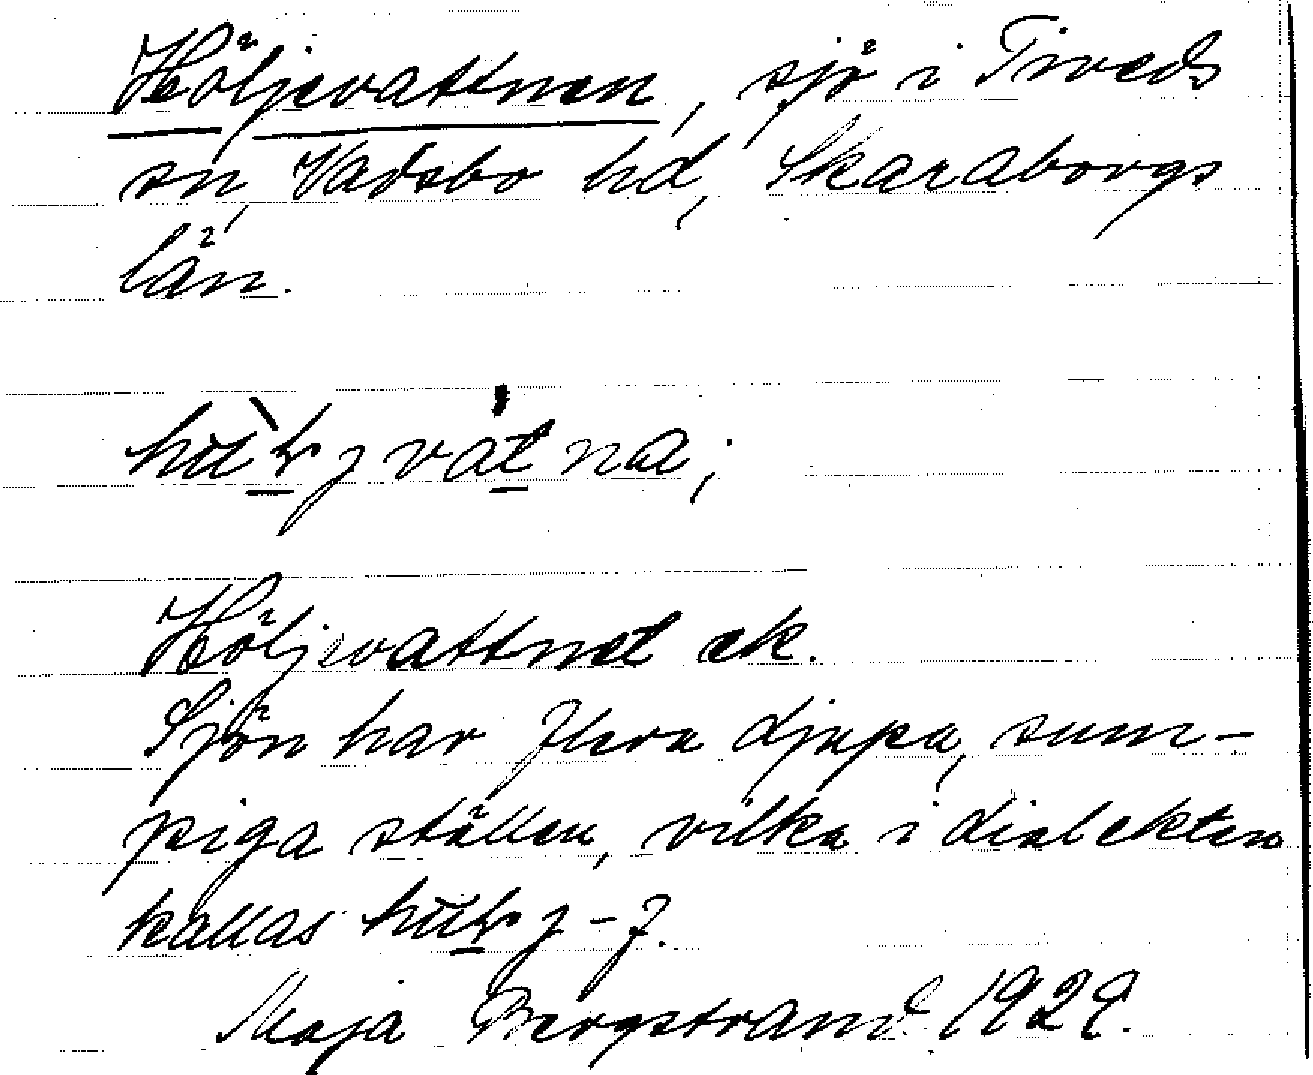 Höljevattnen, sjö i Tiveds
sn, Vadsbo hd, Skaraborgs
län.
Höljevattnet ek.
Sjön har flera djupa, sum-
piga ställen, vilka i dialekten
kallas
Maja Bergstrand. 1929.